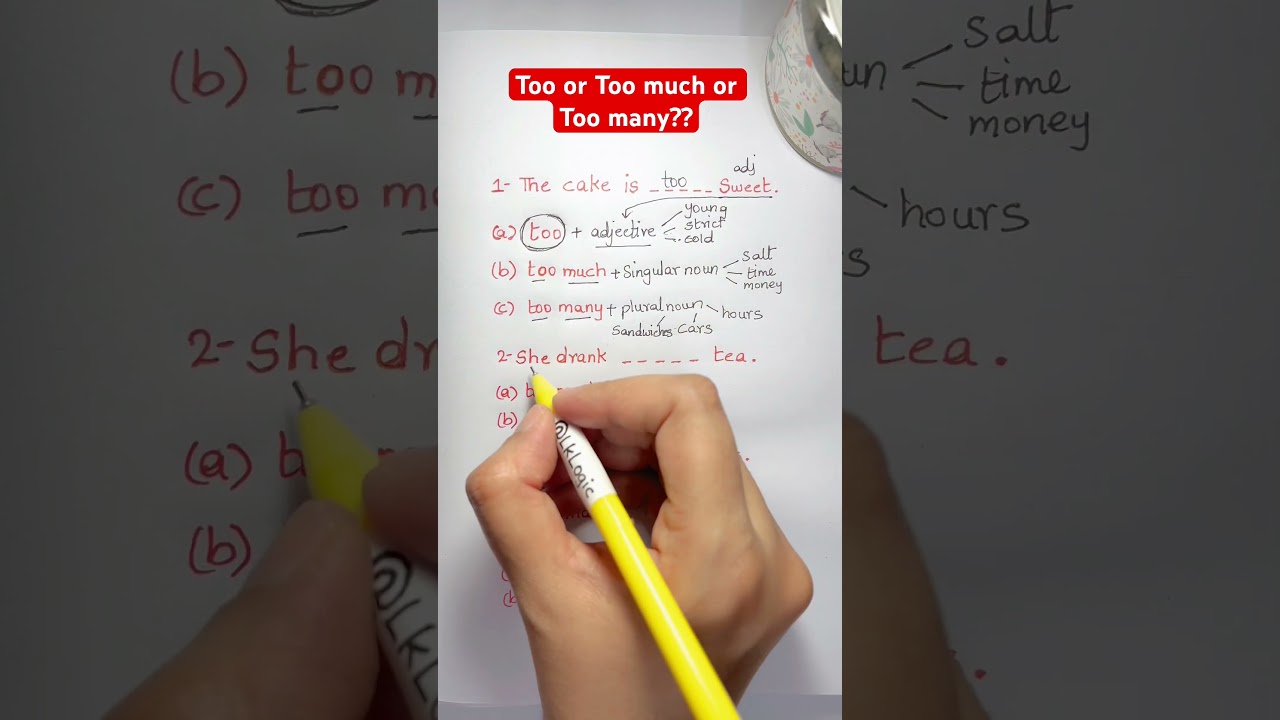 Too or Too much or
Too many??
adj
1- The cake is _ too _ _ Sweet.
(a) too + adjective
young
strict
cold
(b) too much + Singular noun
salt
time
money
(c) too many + plural noun
hours
sandwiches cars
2- She drank _ _ _ _ _ tea.
(a)
(b)
@LkLogic